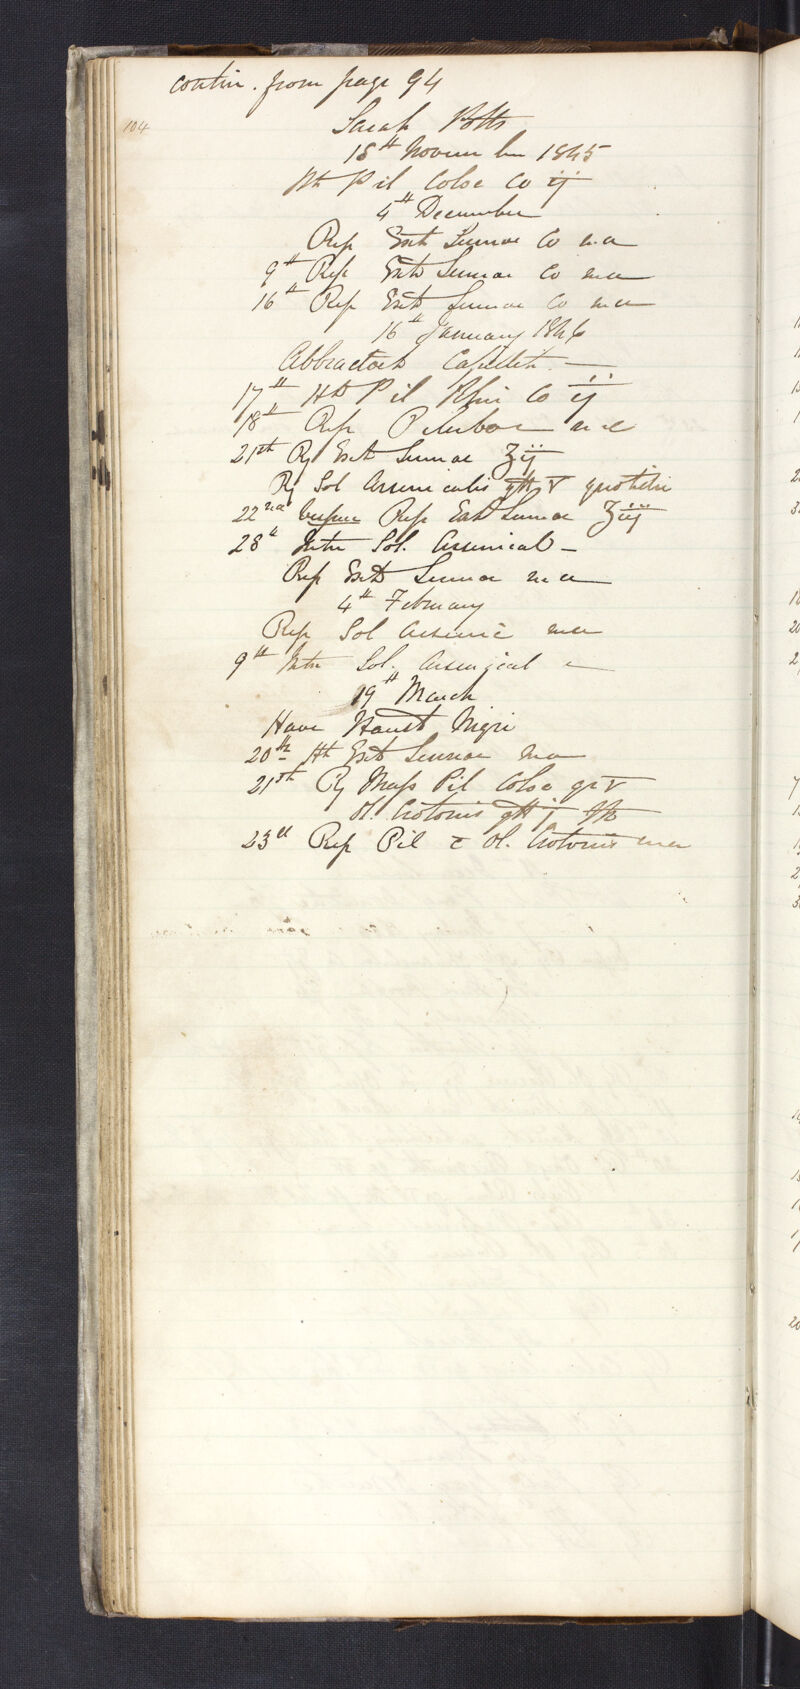 contin. from page 94
104
Sarah Potts
18th November 1845
Ht Pil Coloc Co ij
4th December
Rep Ext Sennae Co m.a
9th Rep Ext Sennae Co m.a
16th Rep Ext Sennae Co m.a
16th January 1846
Abbractoh Capillit
17th Ht Pil Rhei Co ij
18th Rep Pil m.a
21st Rj Ext Sennae ℥ij
Rj Sol Arsenicalis gtt v quotidie
22nd vespere Rep Ext Sennae ℥iij
28th Intr Sol. Arsenical
Rep Ext Sennae m.a
4th February
Rep Sol Arsenic m.a
9th Intr Sol. Arsenical
19th March
Haust Nigri
20th Ht Ext Sennae m.a
21st Rj Mass Pil Coloc gr v
Ol. Crotonis gtt j ft
23d Rep Pil c Ol. Crotonis m.a